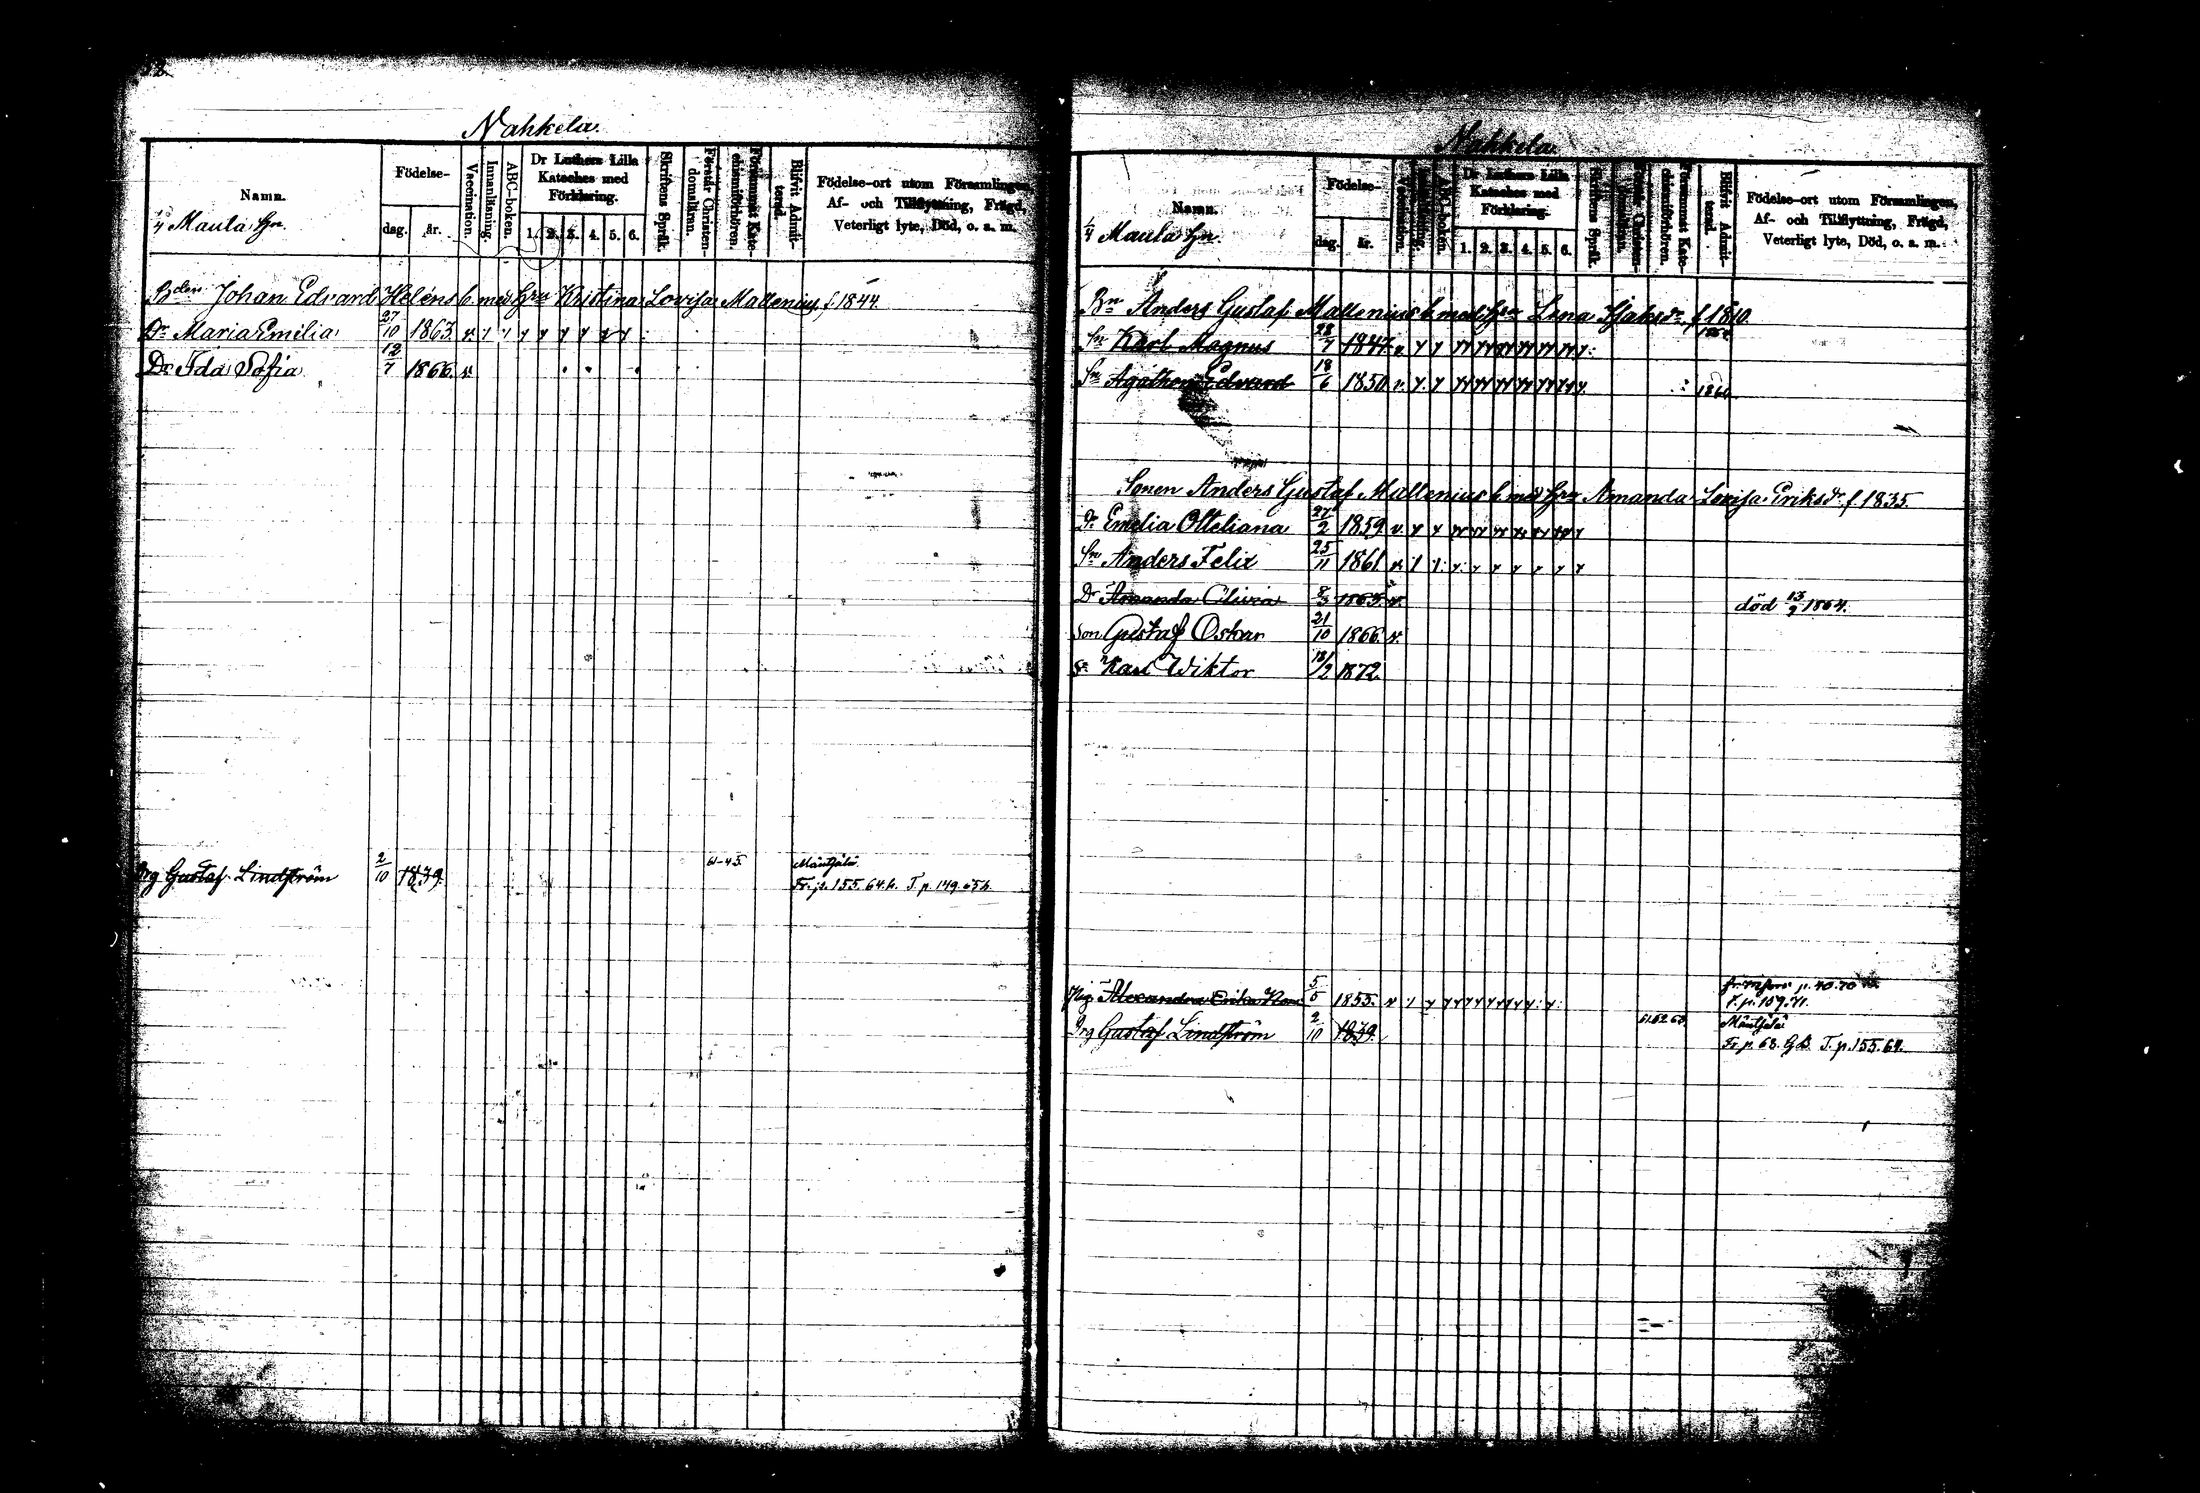 52
Nahkela.
Namn.
Födelse-
dag.
år.
Vaccination.
Innanläsning.
ABC-boken.
Dr Luthers Lilla Kateches med Förklaring.
1. 2. 3. 4. 5. 6.
Skriftens Språk.
Förstår Christendomsläran.
Försummat Katechismiförhören.
Blifvit Admitterad.
Födelse-ort utom Församlingen,
Af- och Tillflyttning, Frägd,
Veterligt lyte, Död, o. a. m.
1/4 Maula Hn.
Bden Johan Edvard Heléns b. med Hru Kristina Lovisa Mallenius, f 1844.
Dr Maria Emilia 27/10 1863. v.
Dr Ida Sofia 12/7 1866. v.
Drg Gustaf Lindström 2/10 1839. 61-45. Mäntsälä
Fr. p. 155. 64. T p. 149
Nahkela.
Namn.
Födelse-
dag.
år.
Vaccination.
Innanläsning.
ABC-boken.
Dr Luthers Lilla Kateches med Förklaring.
1. 2. 3. 4. 5. 6.
Skriftens Språk.
Förstår Christendomsläran.
Försummat Katechismiförhören.
Blifvit Admitterad.
Födelse-ort utom Församlingen,
Af- och Tillflyttning, Frägd,
Veterligt lyte, Död, o. a. m.
1/4 Maula Hn.
Bn Anders Gustaf Mallenius b. med Hru Lena f 1810.
Sn Karl Magnus 28/7 1847. v. 1864.
Sn Agathon Edvard 18/6 1850. v.
Sonen Anders Gustaf Mallenius b. med Hru Amanda Lovisa Eriksdr f 1835.
Dr Emelia Otteliana 27/2 1859. v.
Sn Anders Felix 25/11 1861. v.
Dr Amanda 8/3 1863. v. död 13/2 1864.
Son Gustaf Oskar 21/10 1866. v.
Sn Karl Wiktor 18/2 1872.
Alexandra Erika 5/5 1855. v. p. 40. 70
T. p. 159. 71.
Drg Gustaf Lindström 2/10 1839. 61. 62. 63. Mäntsälä
Fr. p. 68. G.B. T. p. 155. 64.